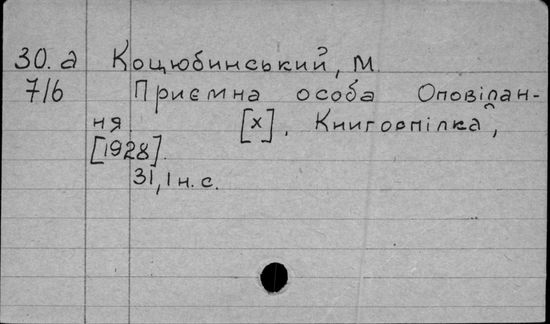 30. а Коцюбинський, М.
7/6 Приємна особа Оповідан-
ня. [х], Книгоспілка,
[1928].
31, 1 н. с.